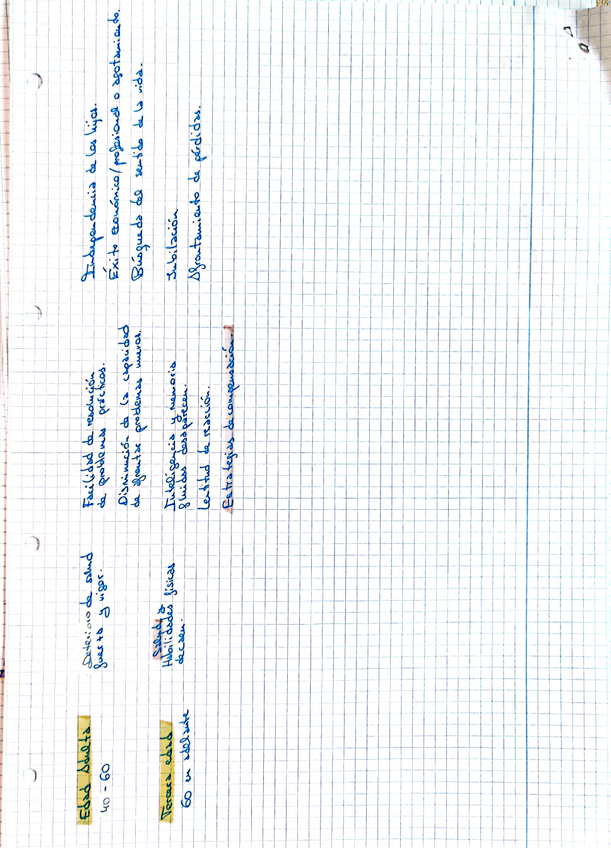 Edad Adulta
40 - 60
Deterioro de salud
fuerza y vigor.
Facilidad de resolución
de problemas prácticos.
Disminución de la capacidad
de afrontar problemas nuevos.
Independencia de los hijos.
Éxito económico/profesional o agotamiento.
Búsqueda del sentido de la vida.
Tercera edad
60 en adelante
Salud y
Habilidades físicas
decaen.
Inteligencia y memoria
fluidas desaparecen.
Lentitud de reacción.
Estrategias de compensación.
Jubilación
Afrontamiento de pérdidas.